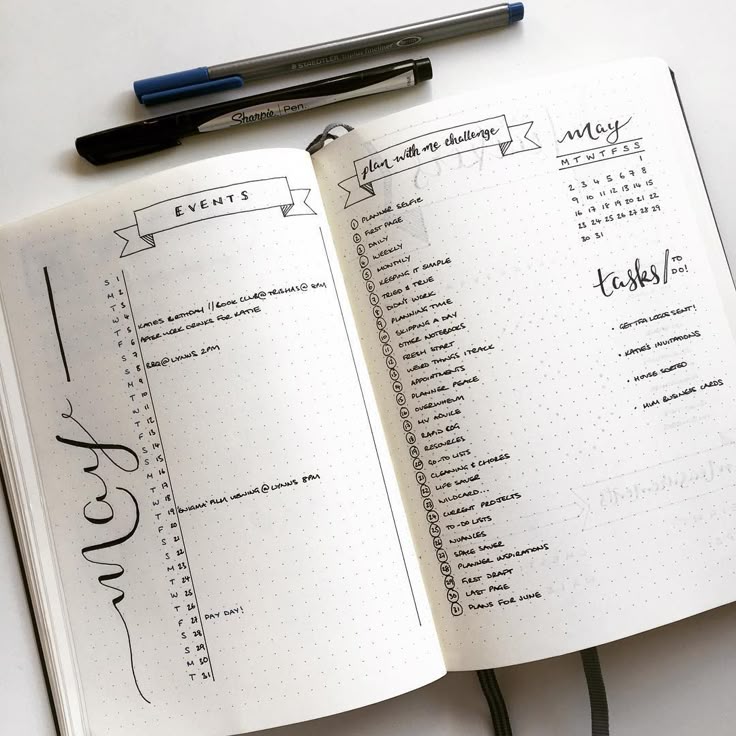 STAEDTLER triplus fineliner
Sharpie Pen
EVENTS
may
S 1
M 2
T 3
W 4
T 5 KATIES BIRTHDAY // BOOK CLUB @ TRISHAS @ 8PM
F 6 AFTER WORK DRINKS FOR KATIE
S 7
S 8 BBQ @ LYNNS 2PM
M 9
T 10
W 11
T 12
F 13
S 14
S 15
M 16
T 17
W 18
T 19 'ENIGMA' FILM VIEWING @ LYNNS 8PM
F 20
S 21
S 22
M 23
T 24
W 25
T 26
F 27 PAY DAY!
S 28
S 29
M 30
T 31
plan with me challenge
1 PLANNER SELFIE
2 FIRST PAGE
3 DAILY
4 WEEKLY
5 MONTHLY
6 KEEPING IT SIMPLE
7 TRIED & TRUE
8 DIDN'T WORK
9 PLANNING TIME
10 SKIPPING A DAY
11 OTHER NOTEBOOKS
12 FRESH START
13 WEIRD THINGS I TRACK
14 APPOINTMENTS
15 PLANNER PEACE
16 OVERWHELM
17 MY ADVICE
18 RAPID LOG
19 RESOURCES
20 GO-TO LISTS
21 CLEANING & CHORES
22 LIFE SAVER
23 WILDCARD...
24 CURRENT PROJECTS
25 TO-DO LISTS
26 NUANCES
27 SPACE SAVER
28 PLANNER INSPIRATIONS
29 FIRST DRAFT
30 LAST PAGE
31 PLANS FOR JUNE
may
M T W T F S S
1
2 3 4 5 6 7 8
9 10 11 12 13 14 15
16 17 18 19 20 21 22
23 24 25 26 27 28 29
30 31
tasks/ TO DO!
· GET TFA LOGOS SENT!
· KATIE'S INVITATIONS
· HOUSE SORTED
· MUM BUSINESS CARDS